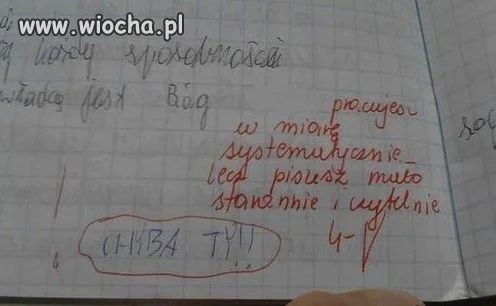 www.wiocha.pl
każdy sposobności
władcą jest Bóg
pracujesz
w miarę
systematycznie_
lecz piszesz mało
starannie i czytelnie
4-
! CHYBA TY!!